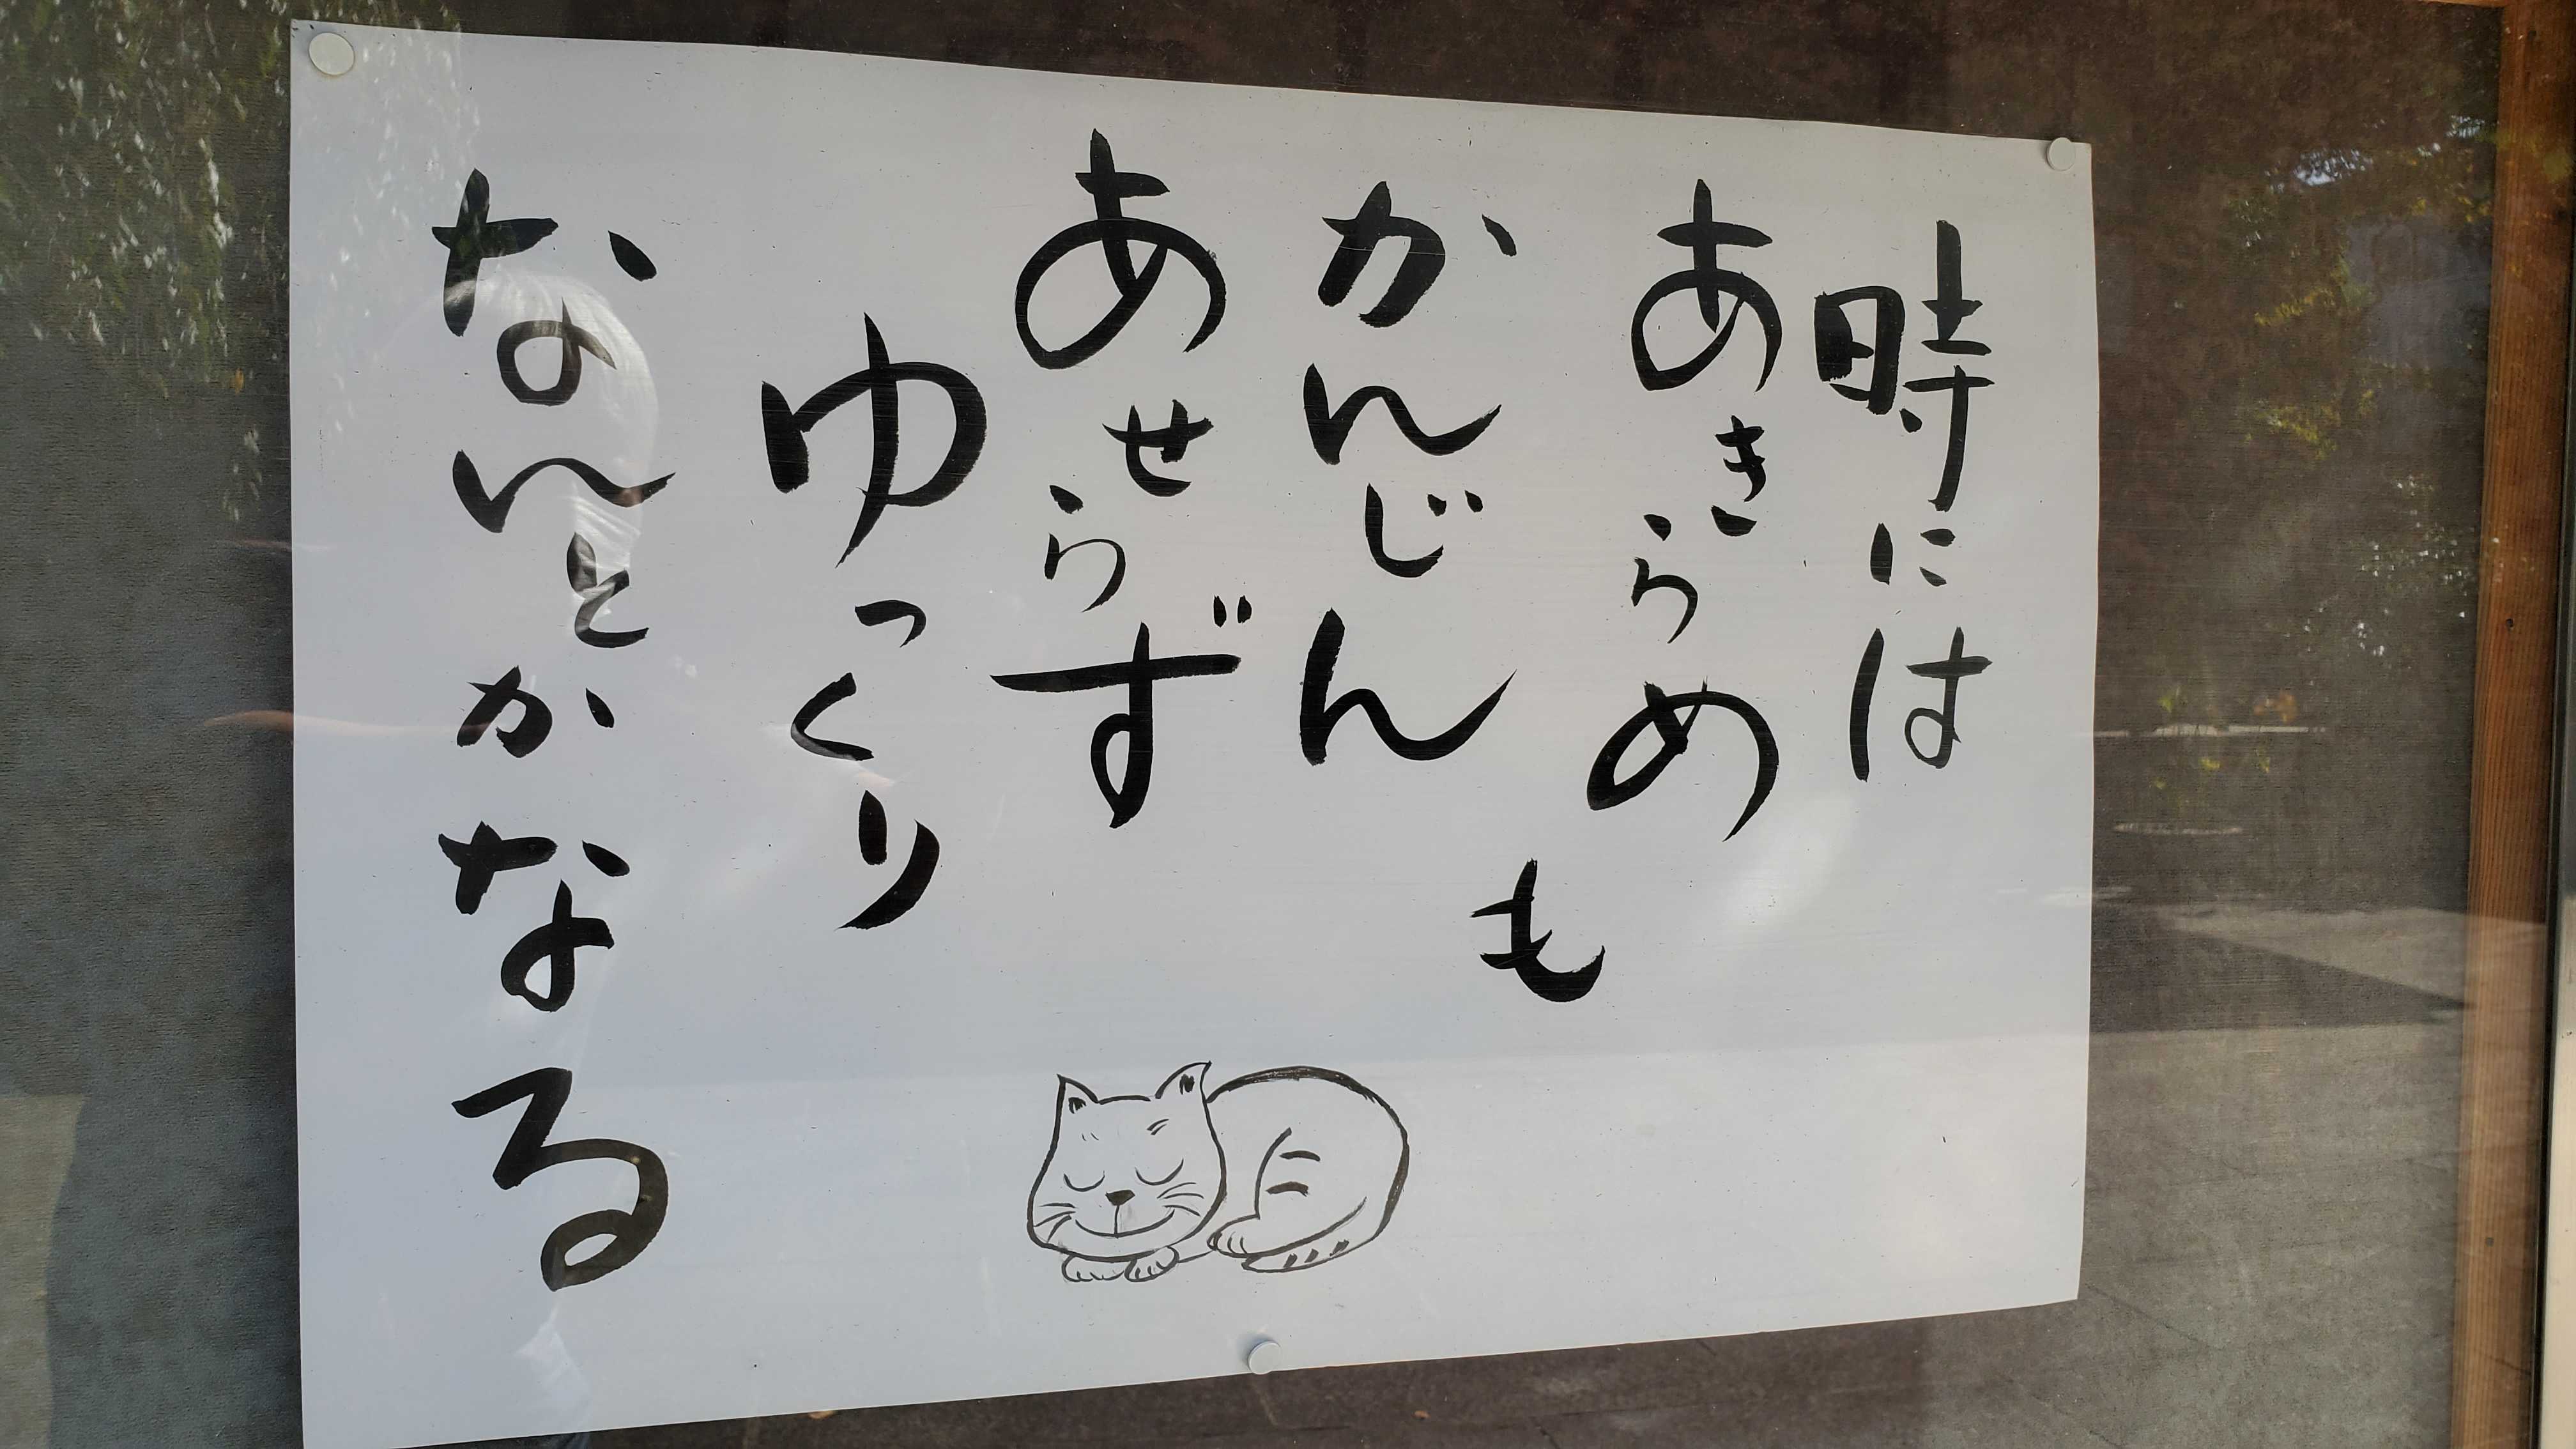 時には
あきらめも
かんじん
あせらず
ゆっくり
なんとかなる